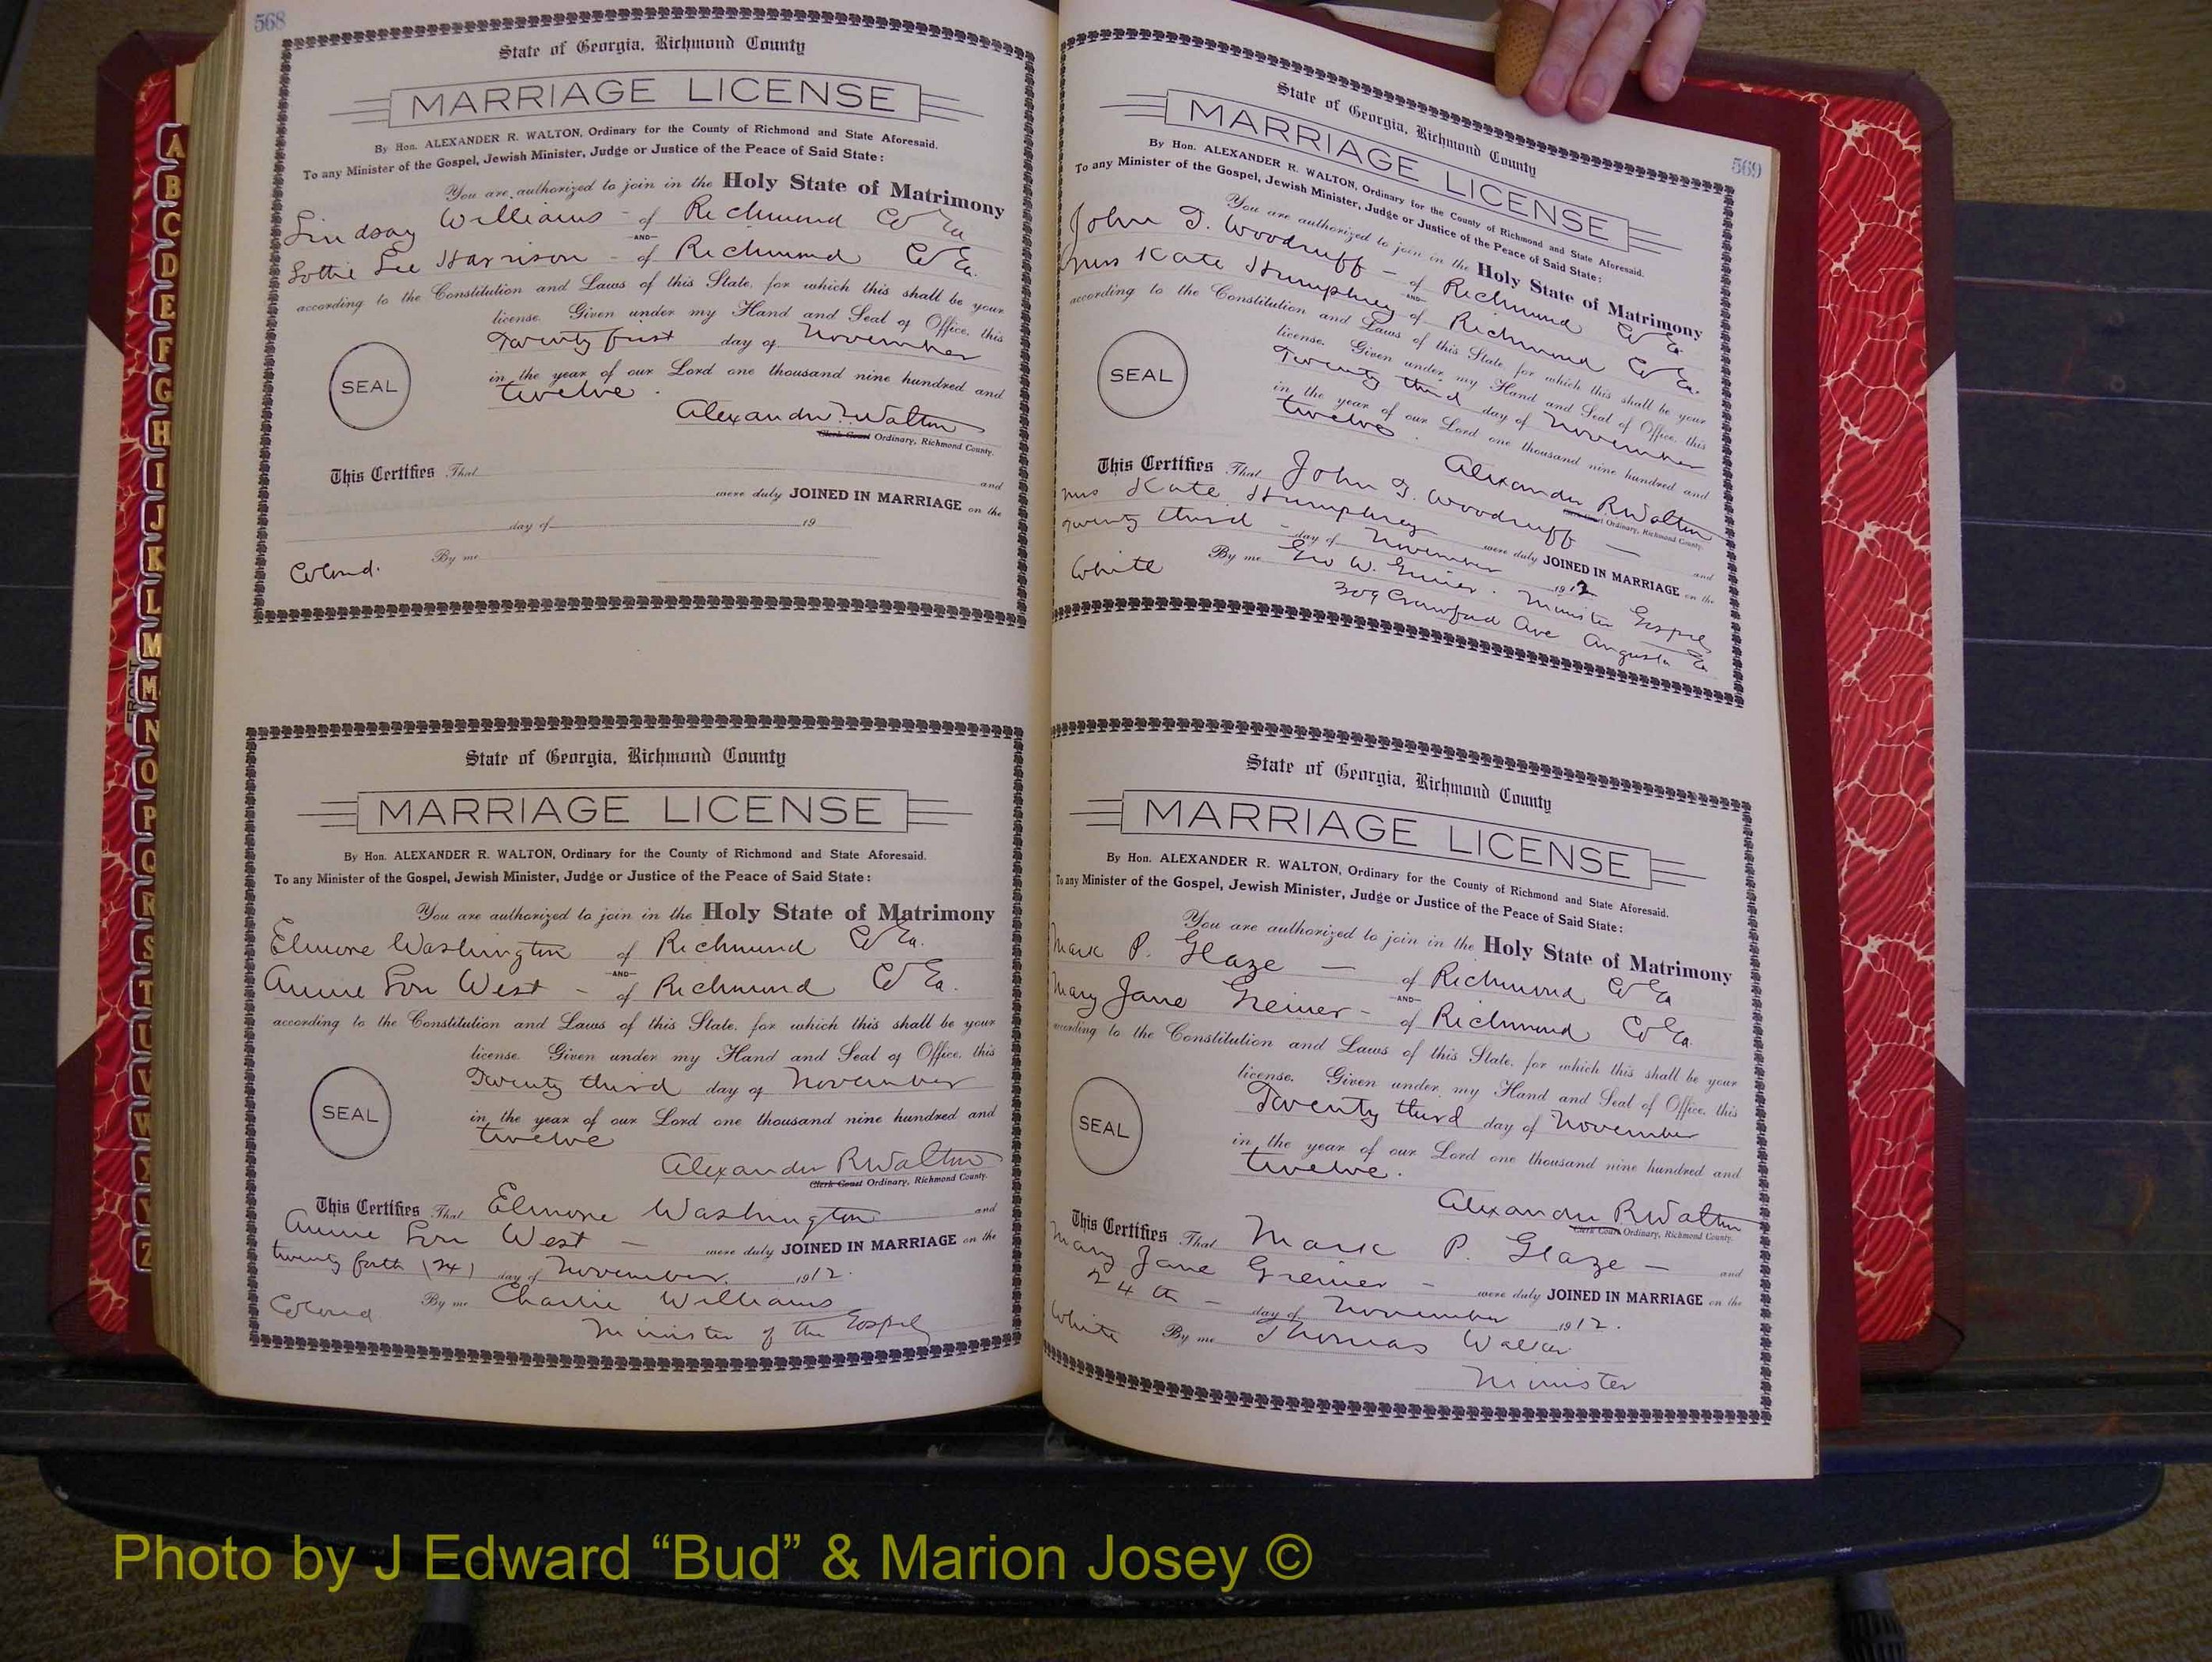 568
State of Georgia, Richmond County
MARRIAGE LICENSE
By Hon. ALEXANDER R. WALTON, Ordinary for the County of Richmond and State Aforesaid.
To any Minister of the Gospel, Jewish Minister, Judge or Justice of the Peace of Said State:
You are authorized to join in the Holy State of Matrimony
Lindsay Williams - of Richmond Co Ga
-AND-
Lottie Lee Harrison - of Richmond Co Ga.
according to the Constitution and Laws of this State, for which this shall be your
license. Given under my Hand and Seal of Office, this
Twenty first day of November
in the year of our Lord one thousand nine hundred and
twelve.
SEAL
Alexander R Walton
Clerk Court Ordinary, Richmond County.
This Certifies That and
were duly JOINED IN MARRIAGE on the
day of 19
By me
Colored.
State of Georgia, Richmond County
MARRIAGE LICENSE
By Hon. ALEXANDER R. WALTON, Ordinary for the County of Richmond and State Aforesaid.
To any Minister of the Gospel, Jewish Minister, Judge or Justice of the Peace of Said State:
You are authorized to join in the Holy State of Matrimony
Elmore Washington of Richmond Co Ga.
-AND-
Annie Lou West - of Richmond Co Ga.
according to the Constitution and Laws of this State, for which this shall be your
license. Given under my Hand and Seal of Office, this
Twenty third day of November
in the year of our Lord one thousand nine hundred and
twelve
SEAL
Alexander R Walton
Clerk Court Ordinary, Richmond County.
This Certifies That Elmore Washington and
Annie Lou West - were duly JOINED IN MARRIAGE on the
twenty forth (24) day of November 1912.
Colored By me Charlie Williams
Minister of the Gospel
569
State of Georgia, Richmond County
MARRIAGE LICENSE
By Hon. ALEXANDER R. WALTON, Ordinary for the County of Richmond and State Aforesaid.
To any Minister of the Gospel, Jewish Minister, Judge or Justice of the Peace of Said State:
You are authorized to join in the Holy State of Matrimony
John T. Woodruff - of Richmond Co Ga.
-AND-
Miss Kate Humphrey - of Richmond Co Ga.
according to the Constitution and Laws of this State, for which this shall be your
license. Given under my Hand and Seal of Office, this
Twenty third day of November
in the year of our Lord one thousand nine hundred and
twelve.
SEAL
Alexander R Walton
Clerk Court Ordinary, Richmond County.
This Certifies That John T. Woodruff - and
Miss Kate Humphrey were duly JOINED IN MARRIAGE on the
twenty third - day of November 1912
White By me Geo W. Minister Gospel
309 Crawford Ave Augusta Ga
State of Georgia, Richmond County
MARRIAGE LICENSE
By Hon. ALEXANDER R. WALTON, Ordinary for the County of Richmond and State Aforesaid.
To any Minister of the Gospel, Jewish Minister, Judge or Justice of the Peace of Said State:
You are authorized to join in the Holy State of Matrimony
Mark P. Glaze - of Richmond Co Ga
-AND-
Mary Jane Greiner - of Richmond Co Ga.
according to the Constitution and Laws of this State, for which this shall be your
license. Given under my Hand and Seal of Office, this
Twenty third day of November
in the year of our Lord one thousand nine hundred and
twelve.
SEAL
Alexander R Walton
Clerk Court Ordinary, Richmond County.
This Certifies That Mark P. Glaze - and
Mary Jane Greiner - were duly JOINED IN MARRIAGE on the
24th - day of November 1912.
White By me Thomas Walker
Minister
A
B
C
D
E
F
G
H
I
J
K
L
M
Mc
N
O
P
Q
R
S
T
U
V
W
X
Y
Z
Photo by J Edward “Bud” & Marion Josey ©